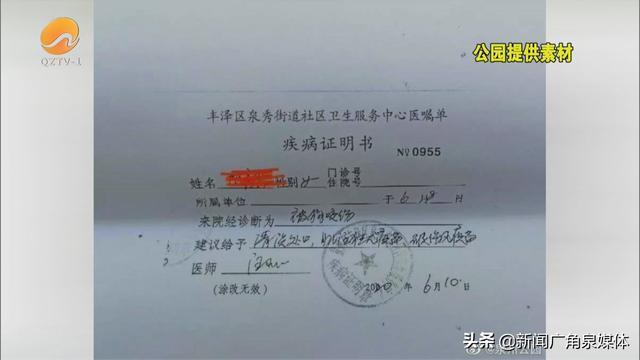 QZTV-1
公园提供素材
丰泽区泉秀街道社区卫生服务中心医嘱单
疾病证明书 №0955
姓名 性别 女 门诊号 住院号
所属单位 于 6 月 8 日
来院经诊断为 被狗咬伤
建议给予
医师
(涂改无效) 2020 年 6月10日
疾病证明章
@泉州公园
头条 @新闻广角泉媒体